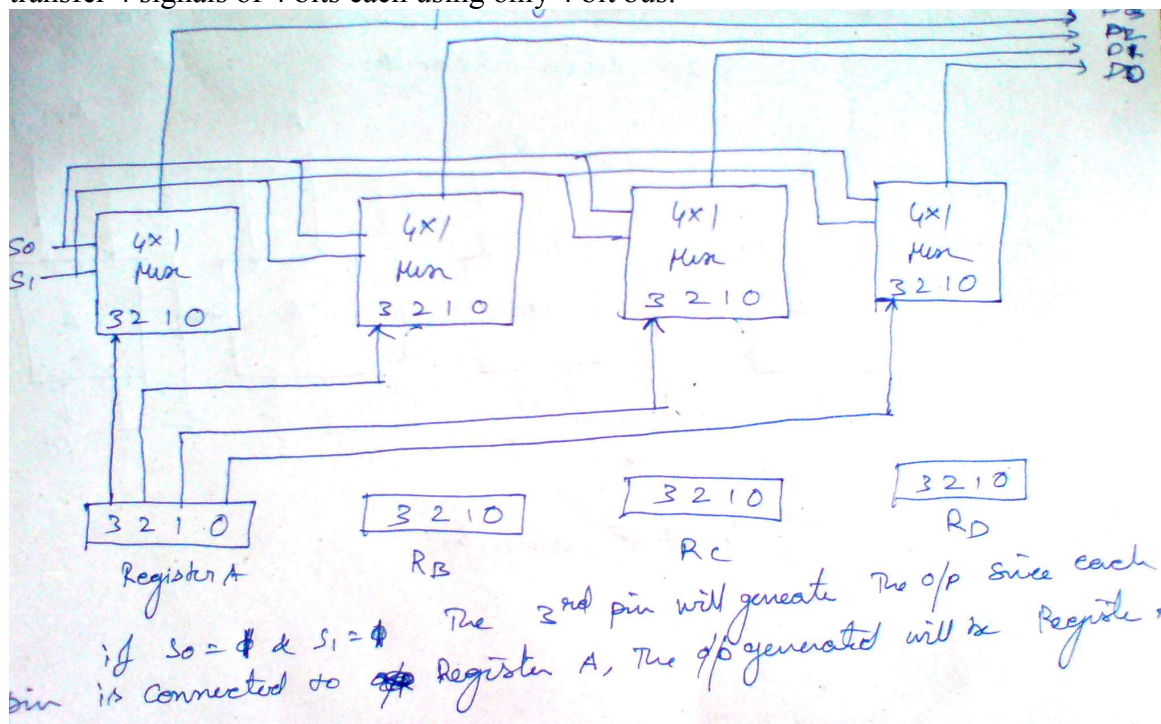 transfer 4 signals of 4 bits each using only 4 bit bus.
S0
S1
4×1
Mux
3 2 1 0
4×1
Mux
3 2 1 0
4×1
Mux
3 2 1 0
4×1
Mux
3 2 1 0
3 2 1 0
Register A
3 2 1 0
RB
3 2 1 0
RC
3 2 1 0
RD
if S0 = & S1 = The 3rd pin will geneate The o/p Since each
pin is connected to Register A, The o/p generated will be Registe